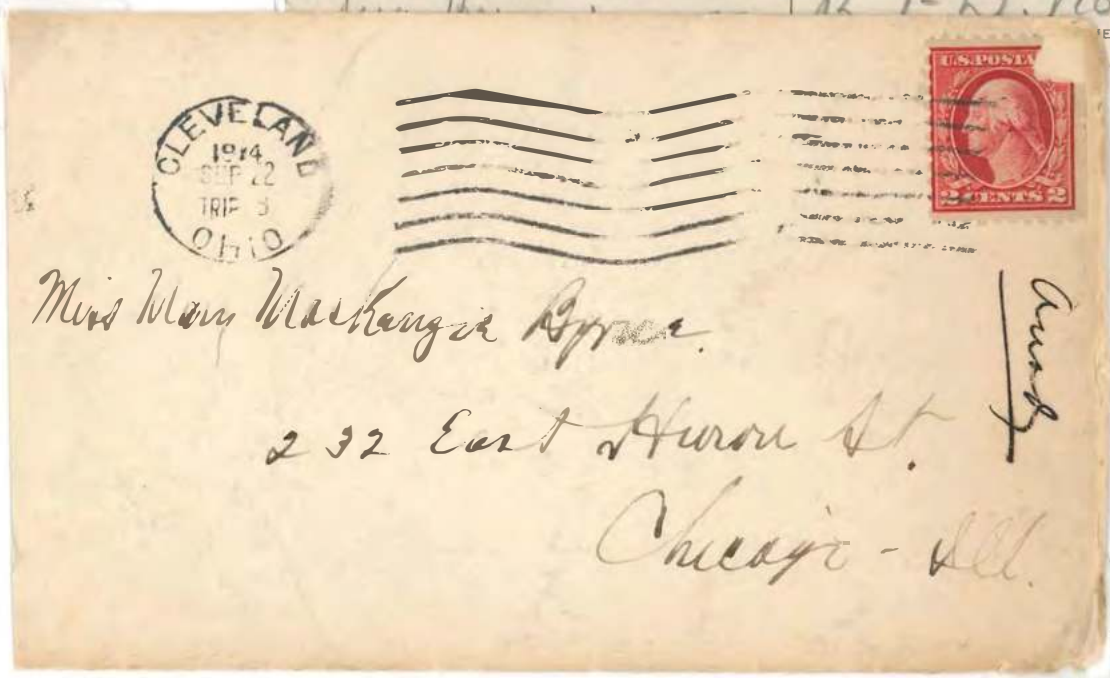 CLEVELAND
1914
SEP 22
TRIP 3
OHIO
U.S. POSTA
2 CENTS 2
Miss Mary MacKenzie Byrne.
232 East Huron St.
Chicago - Ill.